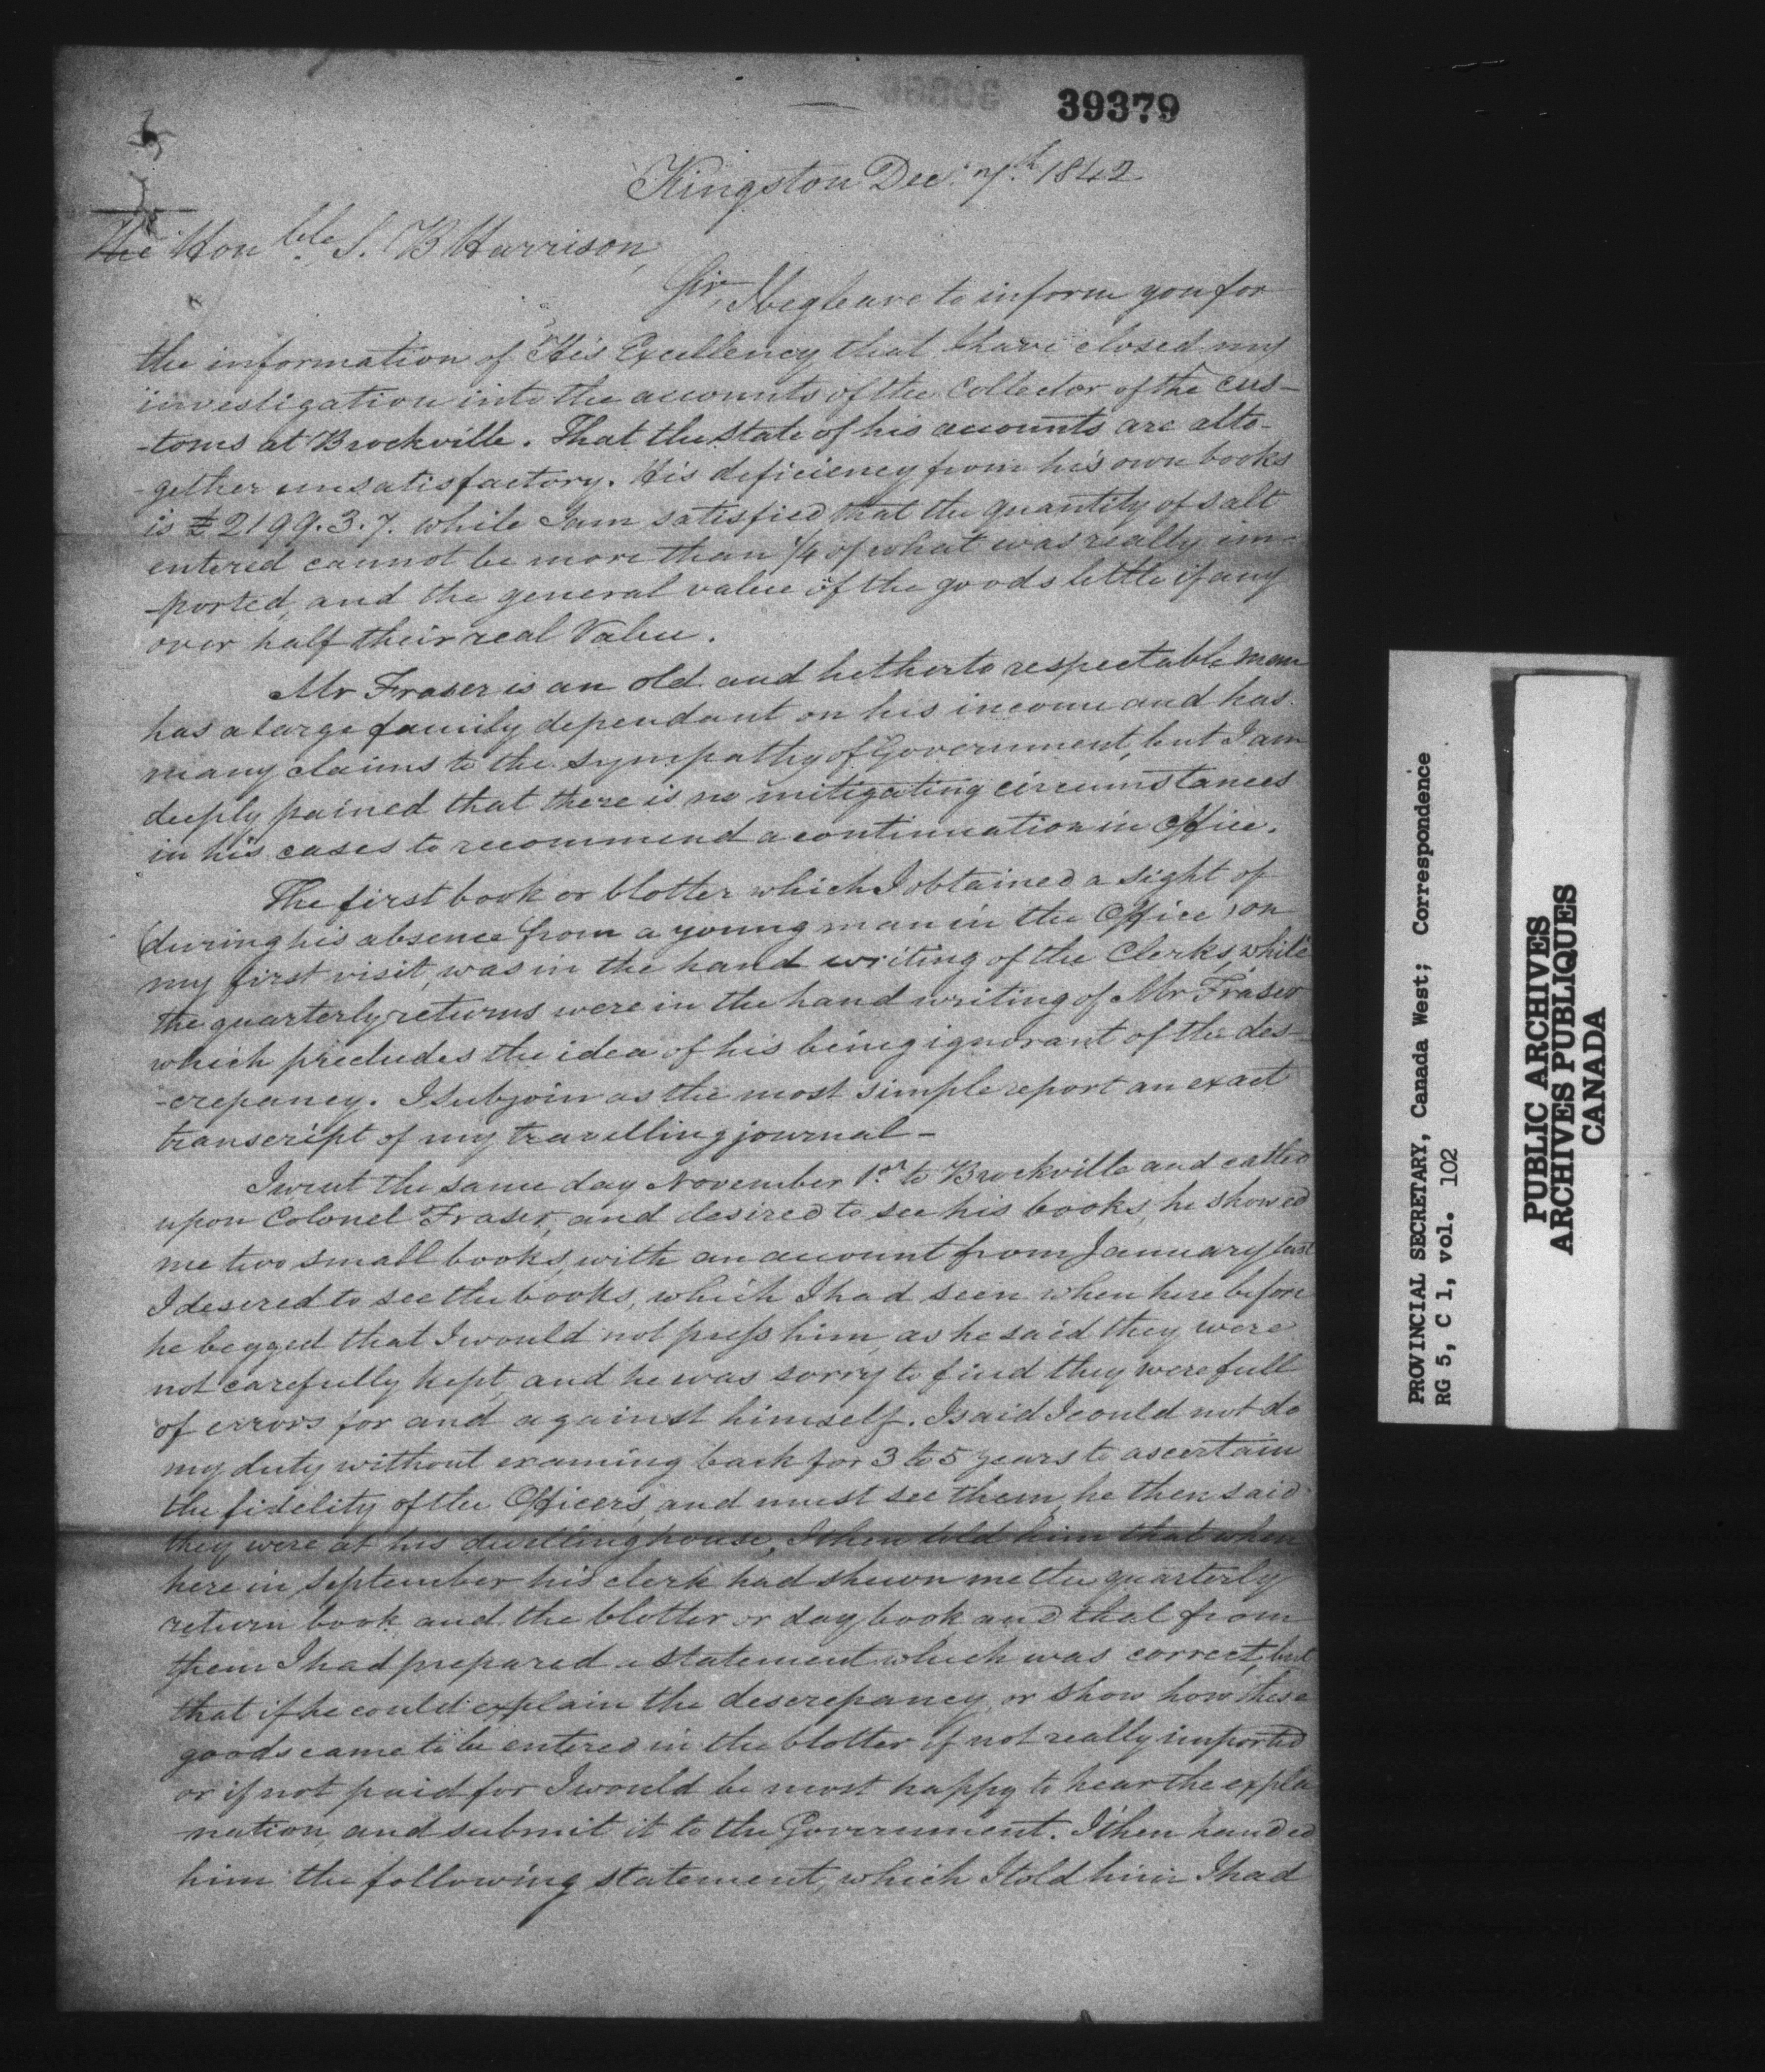 39379
Kingston Decr. 7th 1842
The Honble S. B Harrison,
Sir, I beg leave to inform you for
the information of His Excellency that I have closed my
investigation into the accounts of the Collector of the Cus-
-toms at Brockville. That the state of his accounts are alto-
-gether unsatisfactory. His deficiency from his own books
is £2199.3.7. while I am satisfied that the quantity of salt
entered cannot be more than 1/4 of what was really im-
-ported, and the general value of the goods little if any
over half their real Value.
Mr Fraser is an old and hetherto respectable man
has a large family dependant on his income and has
many claims to the sympathy of Government, but I am
deeply pained that there is no mitigating circumstances
in his cases to recommend a continuation in Office.
The first book or blotter which I obtained a sight of
(during his absence from a young man in the Office) on
my first visit, was in the hand writing of the Clerks, while
the quarterly returns were in the hand writing of Mr Fraser
which precludes the idea of his being ignorant of the des-
-crepancy. I subjoin as the most simple report an exact
transcript of my travelling journal -
I went the same day November 1st to Brockville and called
upon Colonel Fraser, and desired to see his books, he showed
me two small books, with an account from January last
I desered to see the books, which I had seen when here before
he begged that I would not press him, as he said they were
not carefully kept, and he was sorry to find they were full
of errors for and against himself. I said I could not do
my duty without examing back for 3 to 5 years to ascertain
the fidelity of the Officers, and must see them, he then said
they were at his dwelling house, I then told him that when
here in September his clerk had shewn me the quarterly
return book, and the blotter or day book, and that from
them I had prepared a statement which was correct, but
that if he could explain the descrepancy, or show how these
goods came to be entered in the blotter if not really imported
or if not paid for I would be most happy to hear the expla
-nation, and submit it to the Government. I then handed
him the following statement, which I told him I had
PROVINCIAL SECRETARY, Canada West; Correspondence
RG 5, C 1, vol. 102
PUBLIC ARCHIVES
ARCHIVES PUBLIQUES
CANADA